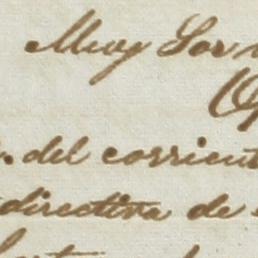 Muy Sor
del corrient
directiva de